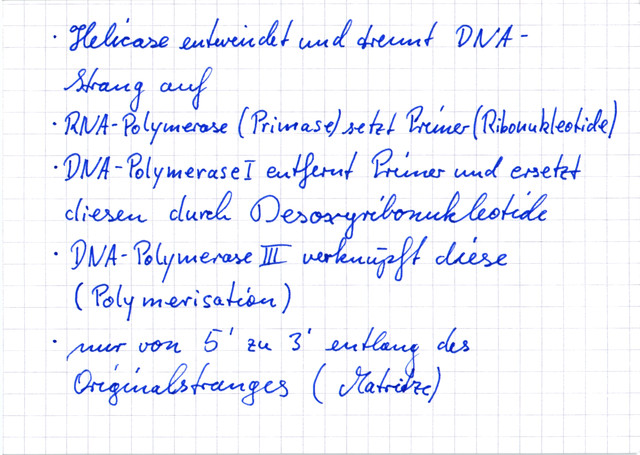 · Helicase entwindet und trennt DNA-
Strang auf
· RNA-Polymerase (Primase) setzt Primer (Ribonukleotide)
· DNA-Polymerase I entfernt Primer und ersetzt
diesen durch Desoxyribonukleotide
· DNA-Polymerase III verknüpft diese
(Polymerisation)
· nur von 5' zu 3' entlang des
Originalstranges (Matritze)